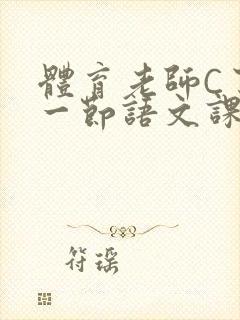 體育老師C
一節語文課
符瑶